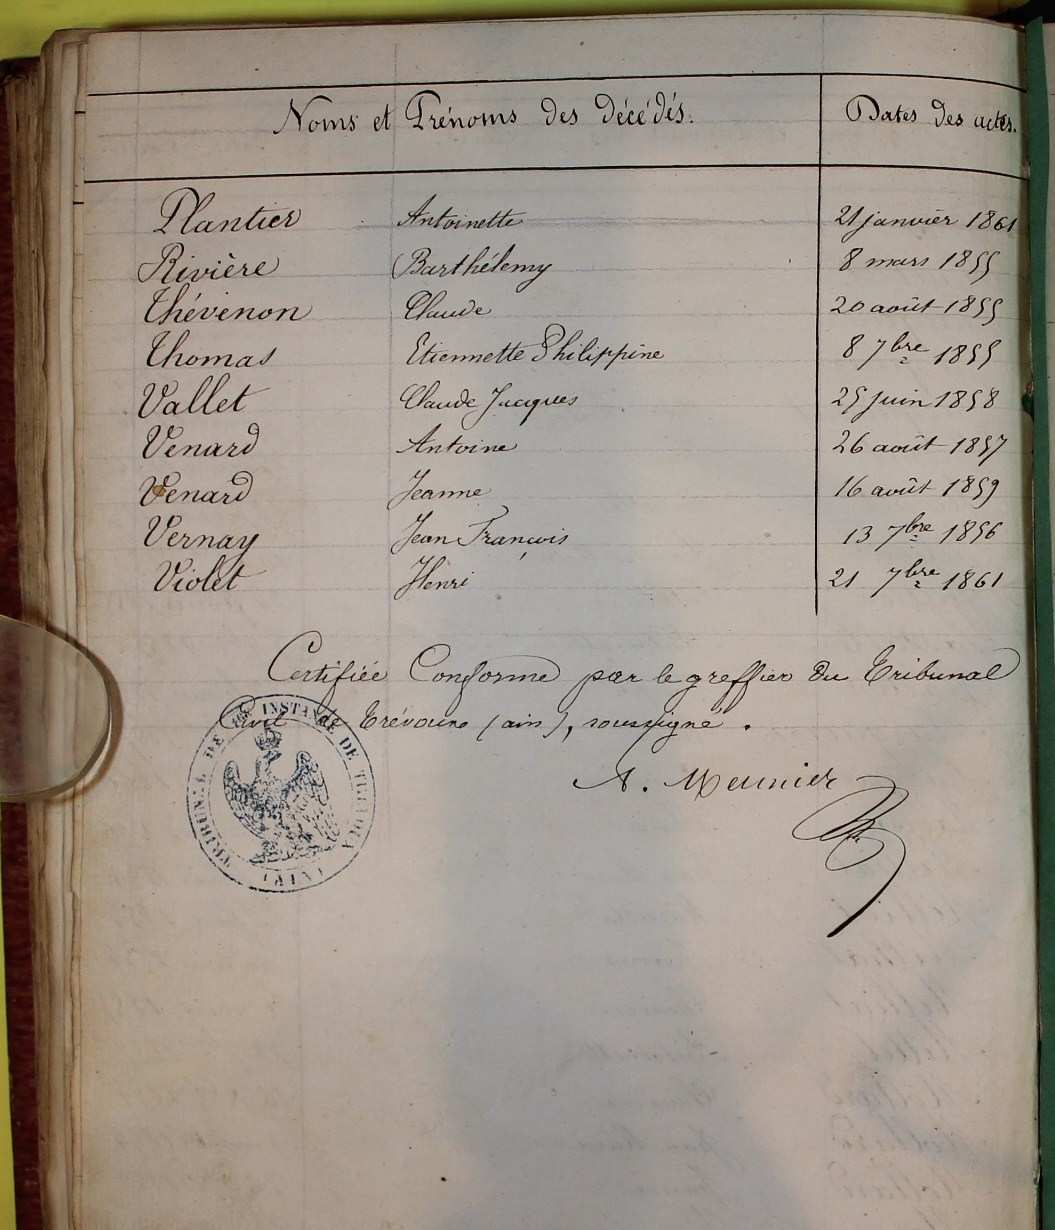 Noms et Prénoms des décédés. Dates des actes.
Plantier Antoinette 21 janvier 1861
Rivière Barthélemy 8 mars 1855
Thévenon Claude 20 août 1855
Thomas Etiennette Philippine 8 7bre 1855
Vallet Claude Jacques 25 juin 1858
Venard Antoine 26 août 1857
Venard Jeanne 16 août 1859
Vernay Jean François 13 7bre 1856
Violet Henri 21 7bre 1861
Certifiée Conforme par le greffier du Tribunal
Civil de Trévoux (ain), soussigné.
A. Meunier
TRIBUNAL DE 1ère INSTANCE DE TREVOUX
(AIN)